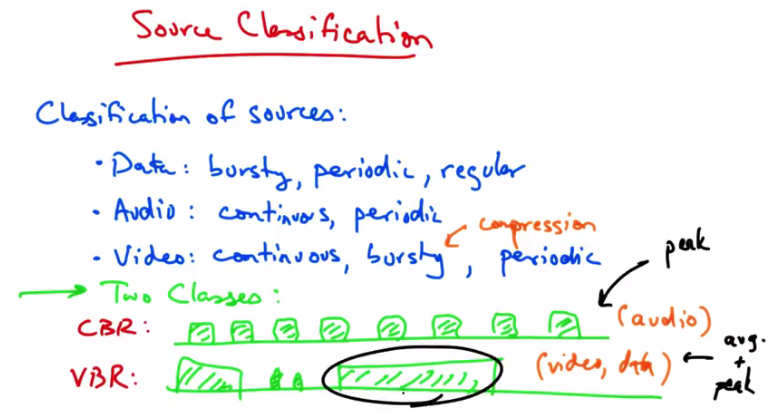 Source Classification
Classification of sources:
• Data: bursty, periodic, regular
• Audio: continuous, periodic
compression
• Video: continuous, bursty, periodic
peak
→ Two Classes:
CBR: (audio)
VBR: (video, data) ← avg. + peak